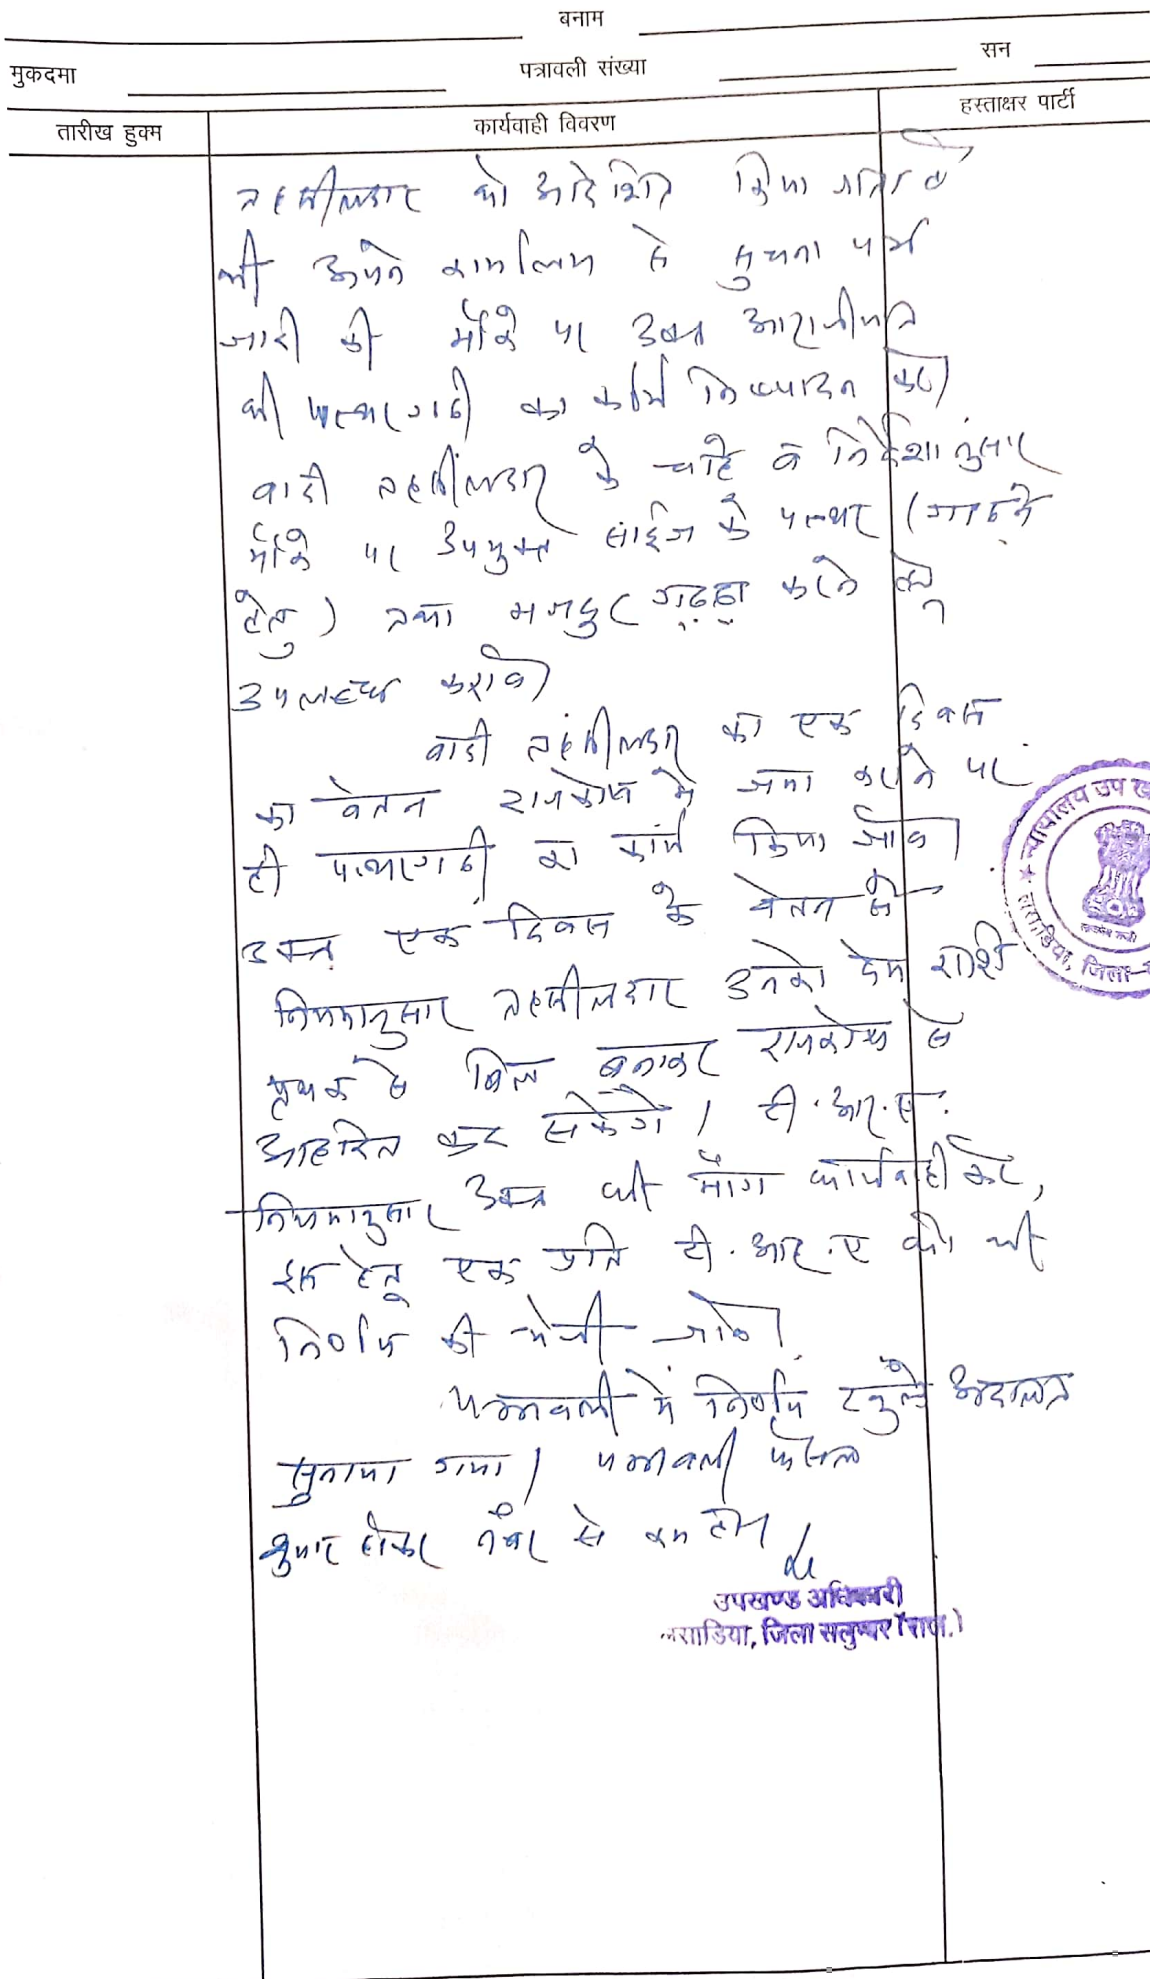 बनाम
मुकदमा पत्रावली संख्या सन
तारीख हुक्म कार्यवाही विवरण हस्ताक्षर पार्टी
तहसीलदार को आदेशित किया जाता है
की अपने कार्यालय से सुचना पत्र
जारी की मौके पर उक्त आराजीयात
की पत्थरगढी का कार्य निष्पादन करे।
वादी तहसीलदार के चाहे व निर्देशानुसार
मौके पर उपयुक्त साईज के पत्थर (गाढने
हेतु) तथा मजदुर गढ्ढा करने हेतु
उपलब्ध करावे।
वादी तहसीलदार का एक दिवस
का वेतन राजकोष मे जमा कराने पर
ही पत्थरगढी का कार्य किया जावे।
उक्त एक दिवस के वेतन से
नियमानुसार तहसीलदार उनको देय राशि
पृथक से बिल बनाकर राजकोष से
आहरित कर सकेंगे। टी.आर.ए.
नियमानुसार उक्त की मांग कार्यवाही करे,
इस हेतु एक प्रति टी.आर.ए को भी
निर्णय की भेजी जावे।
पत्रावली में निर्णय खुले अदालत
सुनाया गया। पत्रावली फैसल
शुमार होकर नंबर से कम हो।
उपखण्ड अधिकारी
लसाडिया, जिला सलुम्बर (राज.)
न्यायालय उप ख
लसाडिया, जिला-